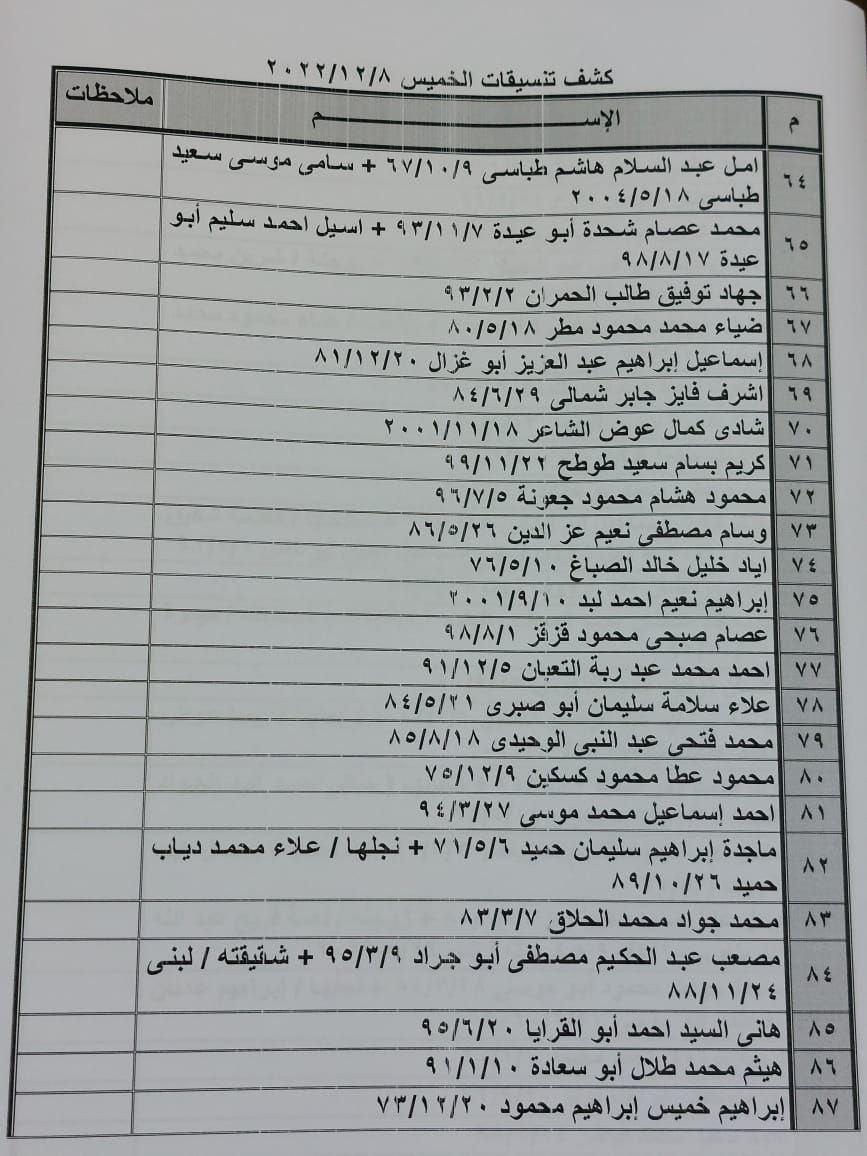 كشف تنسيقات الخميس ٢٠٢٢/١٢/٨
م الإســـــــــــم ملاحظات
٦٤ امل عبد السلام هاشم طباسى ٦٧/١٠/٩ + سامى موسى سعيد
طباسى ٢٠٠٤/٥/١٨
٦٥ محمد عصام شحدة أبو عيدة ٩٣/١١/٧ + اسيل احمد سليم أبو
عيدة ٩٨/٨/١٧
٦٦ جهاد توفيق طالب الحمران ٩٣/٢/٢
٦٧ ضياء محمد محمود مطر ٨٠/٥/١٨
٦٨ إسماعيل إبراهيم عبد العزيز أبو غزال ٨١/١٢/٢٠
٦٩ اشرف فايز جابر شمالى ٨٤/٦/٢٩
٧٠ شادى كمال عوض الشاعر ٢٠٠١/١١/١٨
٧١ كريم بسام سعيد طوطح ٩٩/١١/٢٢
٧٢ محمود هشام محمود جعونة ٩٦/٧/٥
٧٣ وسام مصطفى نعيم عز الدين ٨٦/٥/٢٦
٧٤ اياد خليل خالد الصباغ ٧٦/٥/١٠
٧٥ إبراهيم نعيم احمد لبد ٢٠٠١/٩/١٠
٧٦ عصام صبحى محمود قزقز ٩٨/٨/١
٧٧ احمد محمد عبد ربة التعبان ٩١/١٢/٥
٧٨ علاء سلامة سليمان أبو صبرى ٨٤/٥/٢١
٧٩ محمد فتحى عبد النبى الوحيدى ٨٥/٨/١٨
٨٠ محمود عطا محمود كسكين ٧٥/١٢/٩
٨١ احمد إسماعيل محمد موسى ٩٤/٣/٢٧
٨٢ ماجدة إبراهيم سليمان حميد ٧١/٥/٦ + نجلها / علاء محمد دياب
حميد ٨٩/١٠/٢٦
٨٣ محمد جواد محمد الحلاق ٨٣/٣/٧
٨٤ مصعب عبد الحكيم مصطفى أبو جراد ٩٥/٣/٩ + شقيقته / لبنى
٨٨/١١/٢٤
٨٥ هانى السيد احمد أبو القرايا ٩٥/٦/٢٠
٨٦ هيثم محمد طلال أبو سعادة ٩١/١/١٠
٨٧ إبراهيم خميس إبراهيم محمود ٧٣/١٢/٢٠